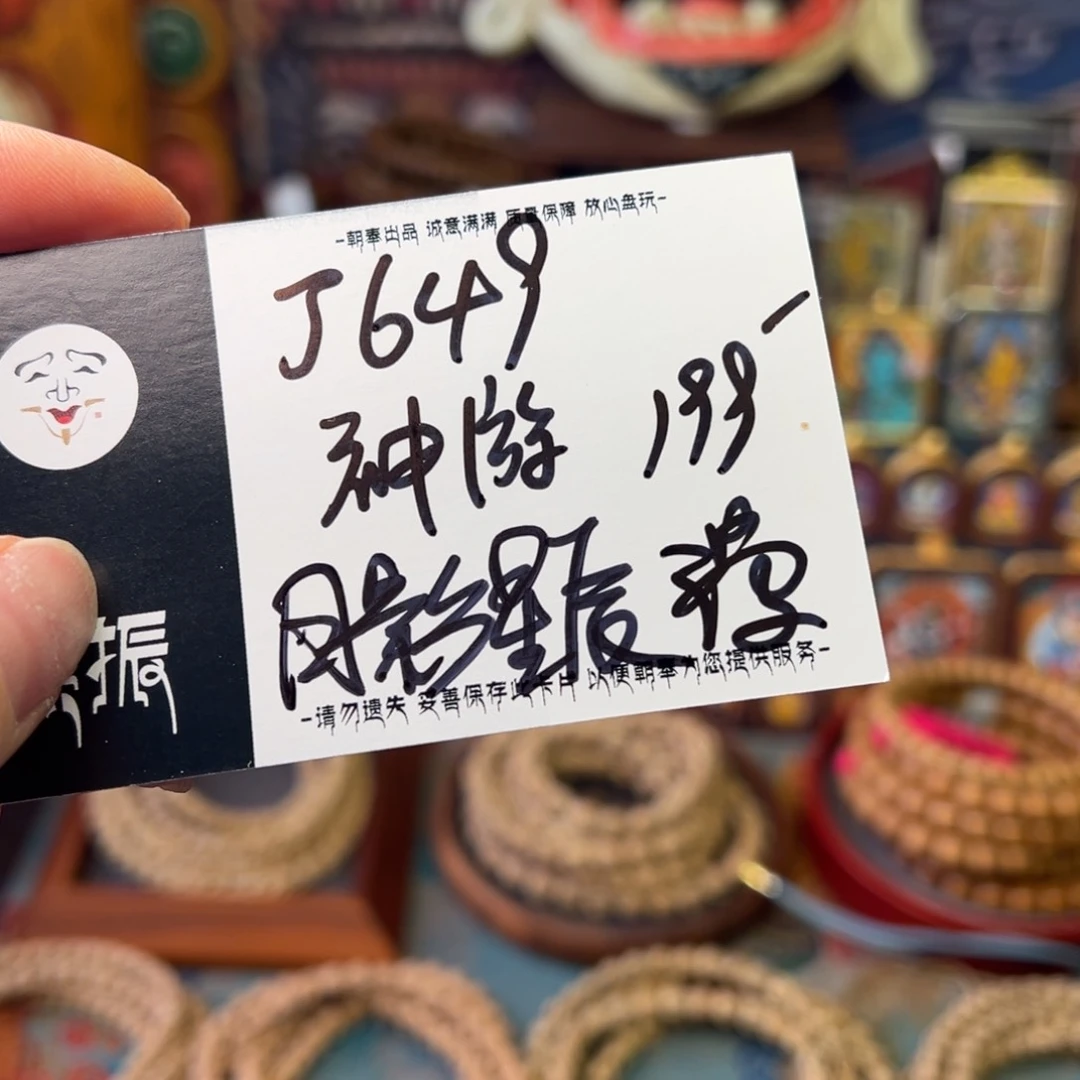 -朝奉出品 诚意满满 质量保障 放心盘玩-
J649
神游 199-
月老彩星辰
-请勿遗失 妥善保存此卡片 以便朝奉为您提供服务-
振